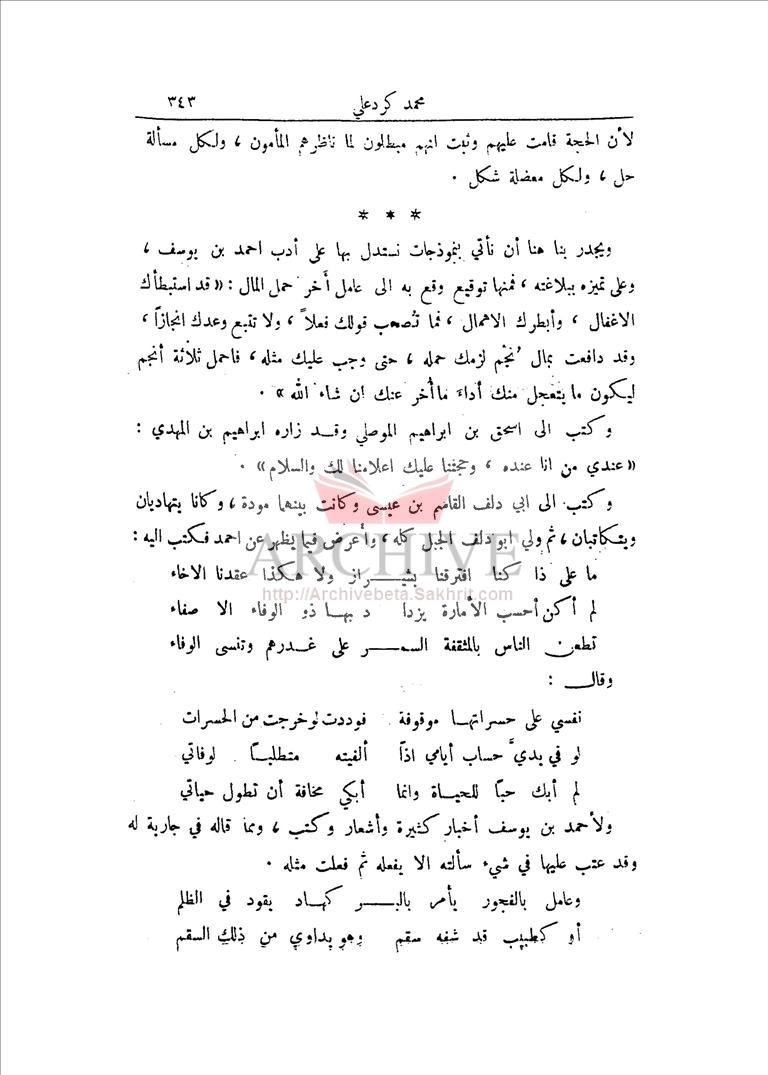 محمد كرد علي ٣٤٣
لأن الحجة قامت عليهم وثبت انهم مبطلون لما ناظرهم المأمون ، ولكل مسألة
حل ، ولكل معضلة شكل .
* * *
ويجدر بنا هنا أن نأتي بنموذجات نستدل بها على أدب احمد بن يوسف ،
وعلى تميزه ببلاغته ، فمنها توقيع وقع به الى عامل أخر حمل المال : « قد استبطأك
الاغفال ، وأبطرك الاهمال ، فما تُصحب قولك فعلاً ، ولا تتبع وعدك انجازاً ،
وقد دافعت بمال نُجْم لزمك حمله ، حتى وجب عليك مثله ، فاحمل ثلاثة أنجم
ليكون ما يتعجل منك أداءَ ما أُخر عنك ان شاء الله » .
وكتب الى اسحق بن ابراهيم الموصلي وقد زاره ابراهيم بن المهدي :
« عندي من انا عنده ، وحجتنا عليك اعلامنا لك والسلام » .
وكتب الى ابي دلف القاسم بن عيسى وكانت بينهما مودة ، وكانا يتهاديان
ويتكاتبان ، ثم ولي ابو دلف الجبل كله ، وأعرض فيما يظهر عن احمد فكتب اليه :
ARCHIVE
ما على ذا كنا افترقنا بشيراز ولا هكذا عقدنا الاخاء
http://Archivebeta.Sakhrit.com
لم أكن أحسب الأمارة يزدا د بها ذو الوفاء الا صفاء
تطعن الناس بالمثقفة السمر على غدرهم وتنسى الوفاء
وقال :
نفسي على حسراتها موقوفة فوددت لو خرجت من الحسرات
لو في يديَّ حساب أيامي اذاً ألفيته متطلباً لوفاتي
لم أبك حباً للحياة وانما أبكي مخافة أن تطول حياتي
ولأحمد بن يوسف أخبار كثيرة وأشعار وكتب ، ومما قاله في جارية له
وقد عتب عليها في شيء سألته الا يفعله ثم فعلت مثله .
وعامل بالفجور يأمر بالبر كهاد يقود في الظلم
أو كطبيب قد شفه سقم وهو يداوي من ذلك السقم